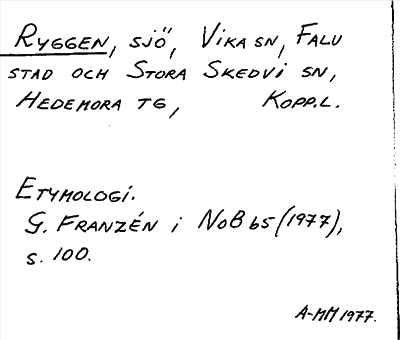 RYGGEN, SJÖ, VIKA SN, FALU
STAD OCH STORA SKEDVI SN,
HEDEMORA TG, KOPP.L.
ETYMOLOGI.
G. FRANZÉN i NoB 65 (1977),
s. 100.
A-MM 1977.